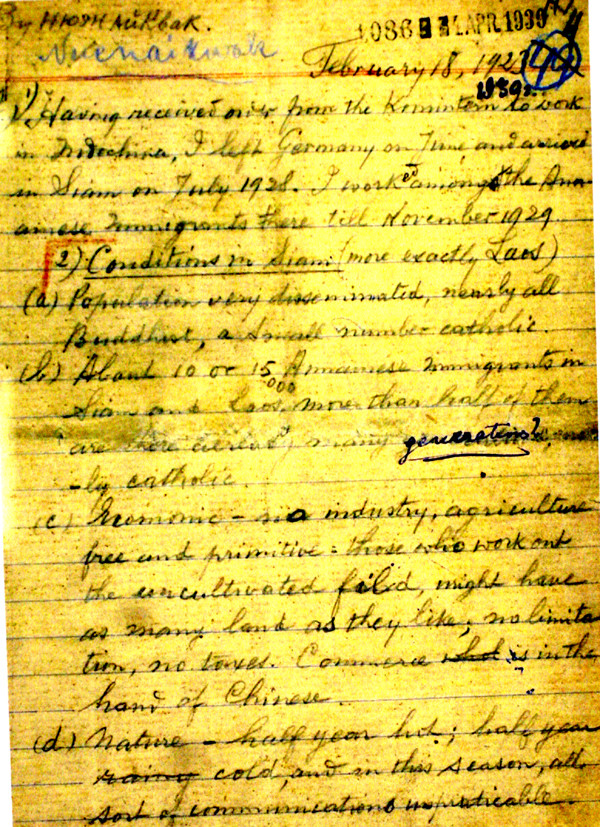 By
1086 1 APR. 1930
February 18, 192
1930
1) Having received order from the Komintern to work
in Indochina, I left Germany on June and arrived
in Siam on July 1928. I worked amongst the Ann-
amese immigrants there till November 1929.
2) Conditions in Siam (more exactly Laos)
(a) Population very disseminated, nearly all
Buddhist, a small number catholic.
(b) About 10 or 15 Annamese immigrants in
000
Siam and Laos, more than half of them
are there many generations,
-ly catholic.
(c) Economic - no industry, agriculture
free and primitive = those who work out
the uncultivated field, might have
as many land as they like; no limita
tion, no taxes. Commerce is in the
hand of Chinese.
(d) Nature - half year hot; half year
rainy cold, and in this season, all
sort of communications impraticable.